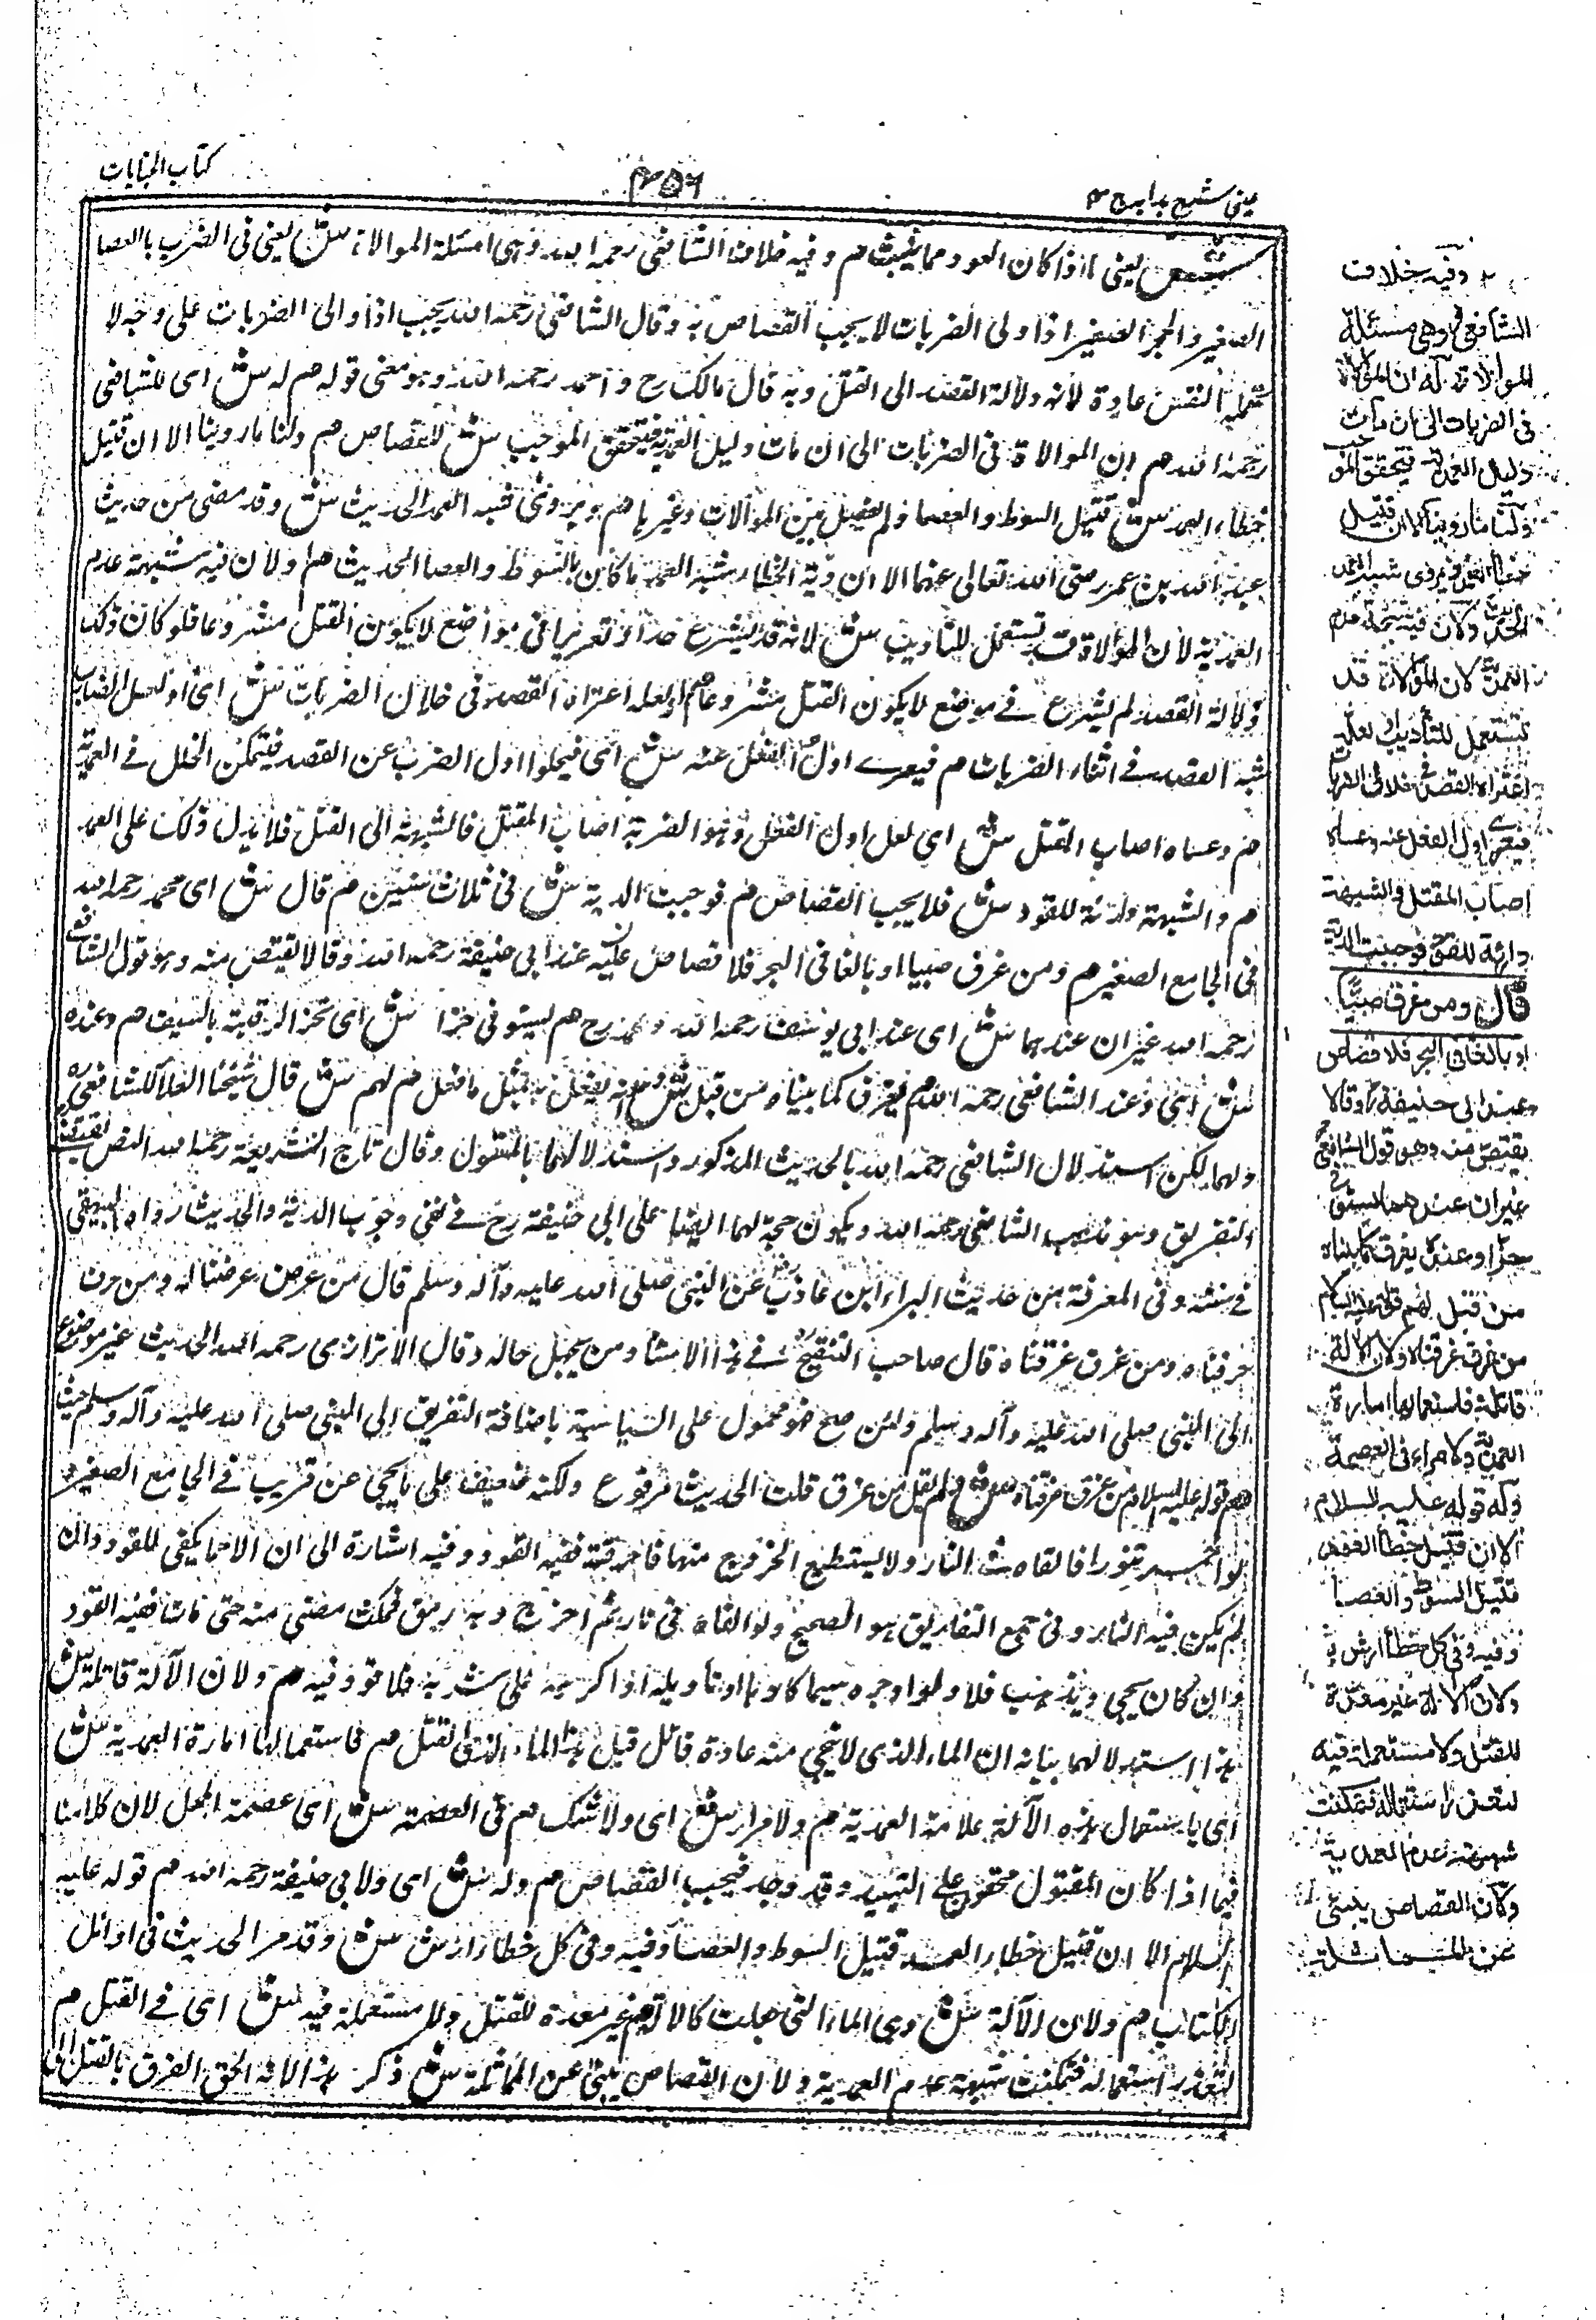 عيني شرح هدايه ج ٤
٤٥٦
كتاب الجنايات
يعني اذا كان العود مما م وفيه خلاف الشافعي رحمه الله وهي مسئلة الموالاة ش يعني في الضرب بالعصا
الصغير والحجر الصغير اذا والى الضربات لا يجب القصاص به وقال الشافعي رحمه الله يجب اذا والى الضربات على وجه لا
النفس عادة لانه دلالة القصد الى القتل وبه قال مالك رح و احمد رحمه الله وهو معنى قوله م له ش اى للشافعي
رحمه الله م ان الموالاة في الضربات الى ان مات دليل العمدية فيتحقق الموجب ش للقصاص م ولنا ما روينا الا ان قتيل
خطاء العمد ش قتيل السوط والعصا ولم يفصل بين الموالات وغيرها م ويروى شبه العمد الحديث ش وقد مضى من حديث
عبد الله بن عمر رضى الله تعالى عنهما الا ان دية الخطاء شبه العمد ما كان بالسوط والعصا الحديث م ولان فيه شبهة عدم
العمدية لان الموالاة قد تستعمل للتاديب ش لانه قد يشرع حدا او تعزيرا في مواضع لا يكون القتل مشروعا فلو كان ذلك
دلالة القصد لم يشرع في موضع لا يكون القتل مشروعا م او لعله اعتراه القصد في خلال الضربات ش اى او لعل الضارب
القصد في اثناء الضربات م فيعرى اول الفعل عنه ش اى فيخلوا اول الضرب عن القصد فيتمكن الخلل في العمدية
م وعساه اصاب المقتل ش اي لعل اول الفعل وهو الضربة اصاب المقتل فالشبهة الى القتل فلا يدل ذلك على العمد
م والشبهة دارئة للقود ش فلا يجب القصاص م فوجبت الدية ش في ثلاث سنين م قال ش اى محمد رحمه الله
في الجامع الصغير م ومن غرق صبيا او بالغا في البحر فلا قصاص عليه عند ابي حنيفة رحمه الله وقالا يقتص منه وهو قول الشافعي
رحمه الله غير ان عندهما ش اى عند ابي يوسف رحمه الله ومحمد رح م يستوفى حزا ش اى تحز الرقبة بالسيف م وعنده
ش اى وعند الشافعي رحمه الله م يغرق كما بيناه من قبل ش انه يفعل به مثل ما فعل م لهم ش قال شيخنا العلا للشافعي
ولهما لكن استدلال الشافعي رحمه الله بالحديث المذكور واستدلالهما بالمنقول وقال تاج الشريعة رحمه الله النص
التغريق وهو مذهب الشافعي رحمه الله ويكون حجة لهما ايضا على ابي حنيفة رح في نفى وجوب الدية والحديث رواه البيهقي
في سننه وفي المعرفة من حديث البراء ابن عازب عن النبي صلى الله عليه وآله وسلم قال من عرض عرضنا له ومن حرق
حرقناه ومن غرق غرقناه قال صاحب التنقيح في هذا الاسناد من يجهل حاله وقال الاترازي رحمه الله الحديث غير مرفوع
الى النبي صلى الله عليه وآله وسلم ولئن صح فهو محمول على السياسة باضافة التغريق الى النبي صلى الله عليه وآله وسلم حيث
م قوله عليه السلام من غرق غرقناه ش ولم يقل من غرق قلت الحديث مرفوع ولكنه ضعيف على ما يجئ عن قريب في الجامع الصغير
لو احمى تنورا فالقاه النار ولا يستطيع الخروج منها فاحرقته ففيه القود وفيه اشارة الى ان الاحما يكفى للقود وان
لم يكن فيه النار وفي جمع التفاريق هو الصحيح ولو القاه في نار ثم اخرج وبه رمق فمكث مضنى منه حتى مات ففيه القود
وان كان يجئ ويذهب فلا ولو اوجره سما كارها او ناوله اذا اكرهه على شربه فلا قود فيه م ولان الآلة قاتلة ش
هذا استدلالهما بيانه ان الماء الذى لا ينجي منه عادة قاتل قيل هذا الماء القتل م فاستعمالها امارة العمدية ش
اى باستعمال هذه الآلة علامة العمدية م ولا مراء ش اى ولا شك م في العصمة ش اى عصمة المحل لان كلامنا
فيما اذا كان المقتول محقون على التابيد وقد وجد فيجب القصاص م وله ش اى ولابي حنيفة رحمه الله م قوله عليه
السلام الا ان قتيل خطاء العمد قتيل السوط والعصا وفيه وفي كل خطاء ارش ش وقد مر الحديث في اوائل
الكتاب م ولان الآلة ش وهي الماء التي جعلت كالآلة م غير معدة للقتل ولا مستعملة فيه ش اى في القتل م
لتعذر استعماله فتمكنت شبهة عدم العمدية ولان القصاص ينبئ عن المماثلة ش ذكر هذا لانه الحق الغرق بالقتل
وفيه خلاف
الشافعي وهى مسئلة
الموالاة له ان الموالاة
في الضربات الى ان مات
دليل العمدية فيتحقق الموجب
ولنا ما روينا الا ان قتيل
خطأ العمد ويروى شبه العمد
الحديث ولان فيه شبهة عدم
العمدية لان الموالاة قد
تستعمل للتأديب او لعله
اعتراه القصد في خلال الضربات
فيعرى اول الفعل عنه وعساه
اصاب المقتل والشبهة
دارئة للقود فوجبت الدية
قال ومن غرق صبيًّا
او بالغا في البحر فلا قصاص
عند ابى حنيفة وقالا
يقتص منه وهو قول الشافعي
غير ان عندهما يستوفى
حزا وعنده يغرق كما بيناه
من قبل لهم قوله عليه السلام
من غرق غرقناه ولان الآلة
قاتلة فاستعمالها امارة
العمدية ولا مراء فى العصمة
وله قوله عليه السلام
الا ان قتيل خطأ العمد
قتيل السوط والعصا
وفيه وفى كل خطأ ارش
ولان الآلة غير معدة
للقتل ولا مستعملة فيه
لتعذر استعماله فتمكنت
شبهة عدم العمدية
ولان القصاص ينبئ
عن المماثلة